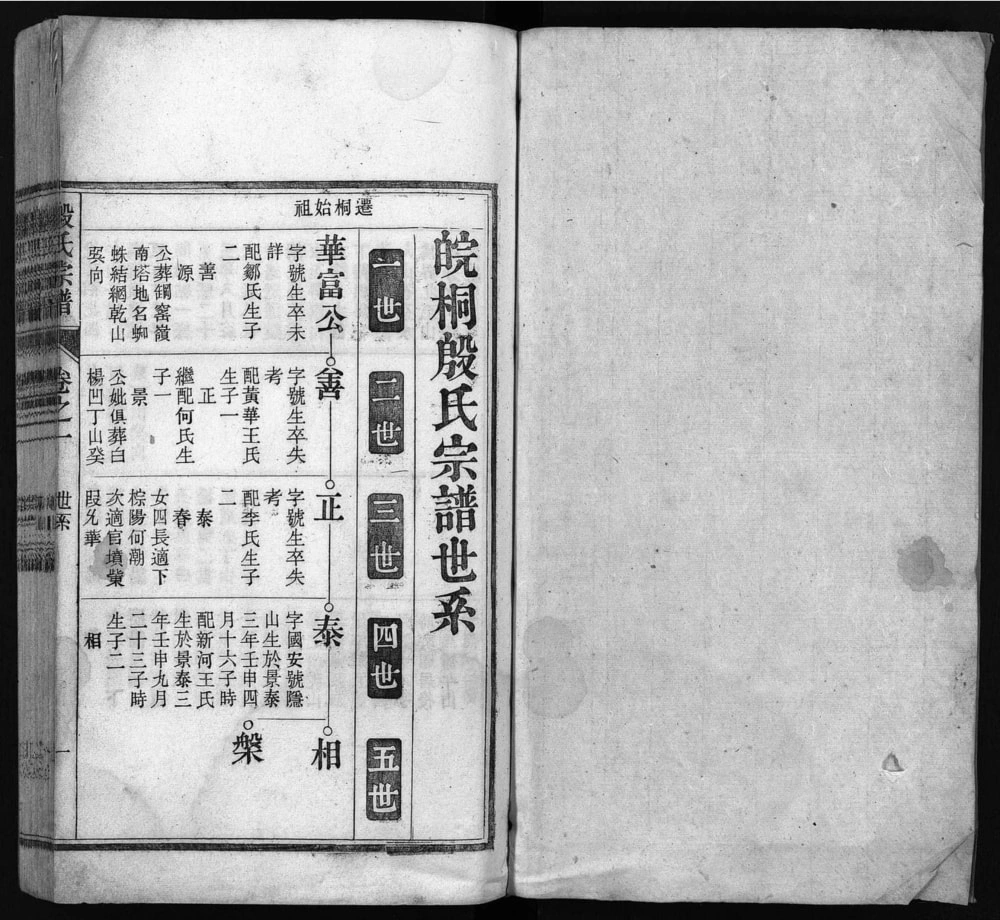 皖桐殷氏宗譜世系
一世
二世
三世
四世
五世
遷桐始祖
華富公
字號生卒未
詳
配鄒氏生子
二
善
源
公葬鐲窰嶺
南塔地名蜘
蛛結網乾山
㢲向
善
字號生卒失
考
配黃華王氏
生子一
正
繼配何氏生
子一
景
公妣俱葬白
楊凹丁山癸
正
字號生卒失
考
配李氏生子
二
泰
春
女四長適下
棕陽何潮
次適官墳柴
段允華
泰
字國安號隱
山生於景泰
三年壬申四
月十六子時
配新河王氏
生於景泰三
年壬申九月
二十三子時
生子二
相
相
槃
殷氏宗譜
卷之一
世系
一